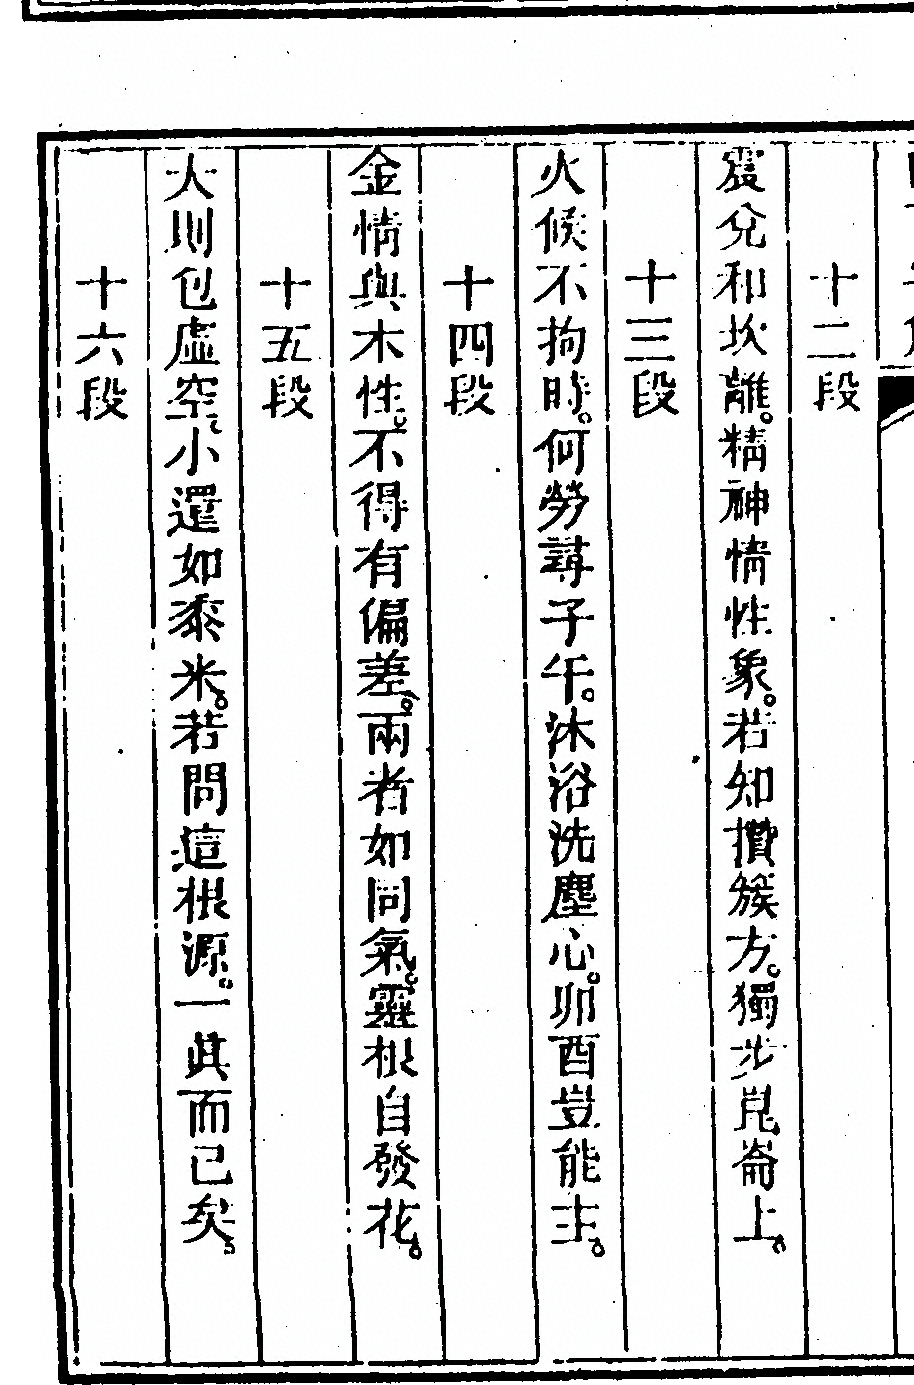 十二段
震兌和坎離。精神情性象。若知攢簇方。獨步崑崙上。
十三段
火候不拘時。何勞尋子午。沐浴洗塵心。卯酉豈能主。
十四段
金情與木性。不得有偏差。兩者如同氣。靈根自發花。
十五段
大則包虛空。小還如黍米。若問這根源。一眞而已矣。
十六段